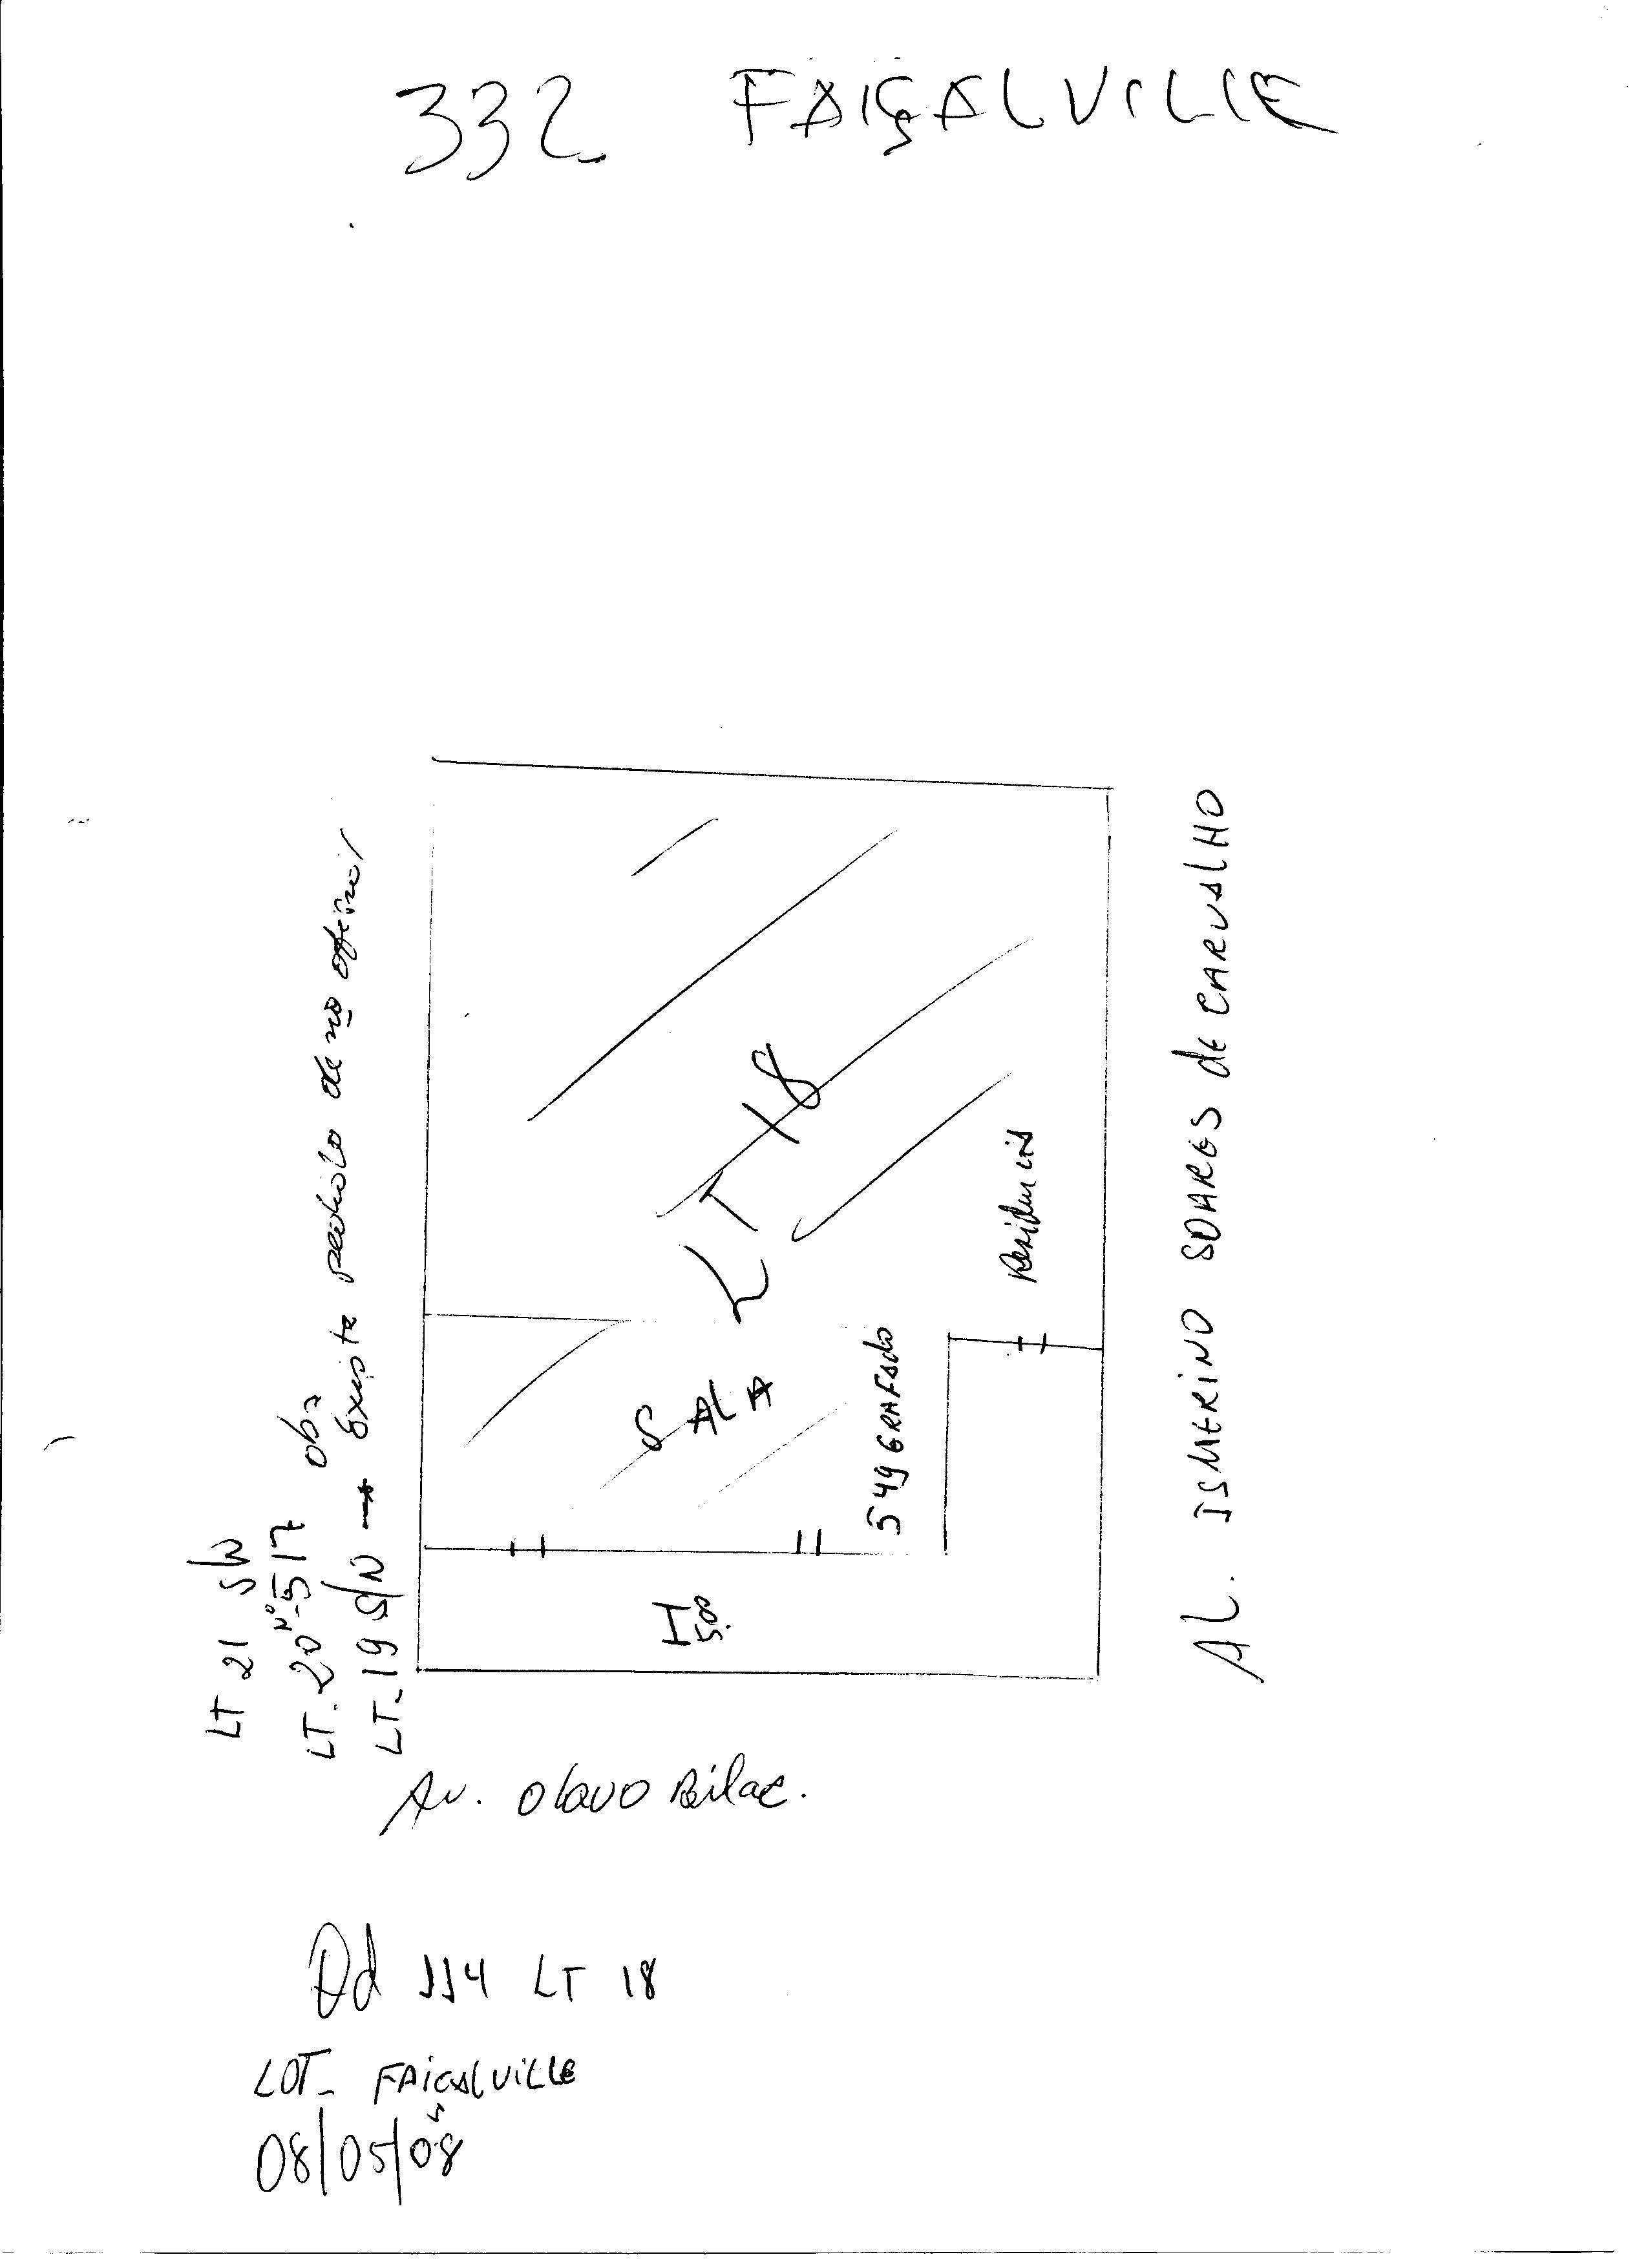 332 FAIÇALVILLE
LT 21 S/N
LT. 20 Nº-517 obs
LT-19 S/N → Existe pedido de nº oficial
LT 18
SALA
549 GRAFADO
Residencia
5.00
AL. ISMERINO SOARES de CARVALHO
Av. Olavo Bilac.
Qd 114 LT 18
LOT- FAIÇALVILLE
08/05/08